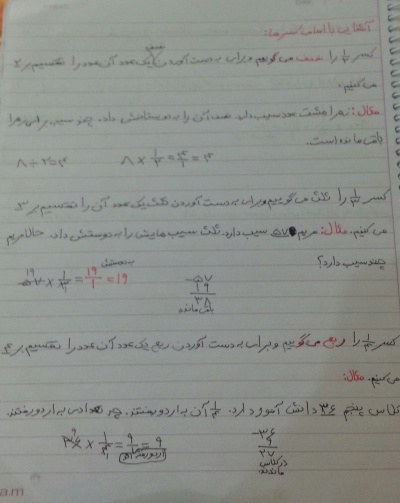 آشنایی با اسامی کسرها:
کسر ۱/۲ را نصف می گوییم و برای به دست آوردن نصف یک عدد آن عدد را تقسیم بر ۲
می کنیم.
مثال: زهرا هشت عدد سیب دارد. نصف آن را به دوستانش داد. چند سیب برای زهرا
باقی مانده است.
۸ ÷ ۲ = ۴ ۸ × ۱/۲ = ۴/۱ = ۴
کسر ۱/۳ را ثلث می گوییم و برای به دست آوردن ثلث یک عدد آن را تقسیم بر ۳
می کنیم. مثال: مریم ۵۷ سیب دارد. ثلث سیب هایش را به دوستش داد. حالا مریم
چند سیب دارد؟
۵۷ × ۱/۳ = ۱۹/۱ = ۱۹ به دوستش
۵۷
- ۱۹
۳۸
باقی مانده
کسر ۱/۴ را ربع می گوییم و برای به دست آوردن ربع یک عدد آن عدد را تقسیم بر ۴
می کنیم. مثال:
کلاس پنجم ۳۶ دانش آموز دارد. ۱/۴ آن به اردو رفتند. چه تعدادی به اردو رفتند.
۳۶ × ۱/۴ = ۹/۱ = ۹
اردو رفته
۳۶
- ۹
۲۷
در کلاس
ماندند